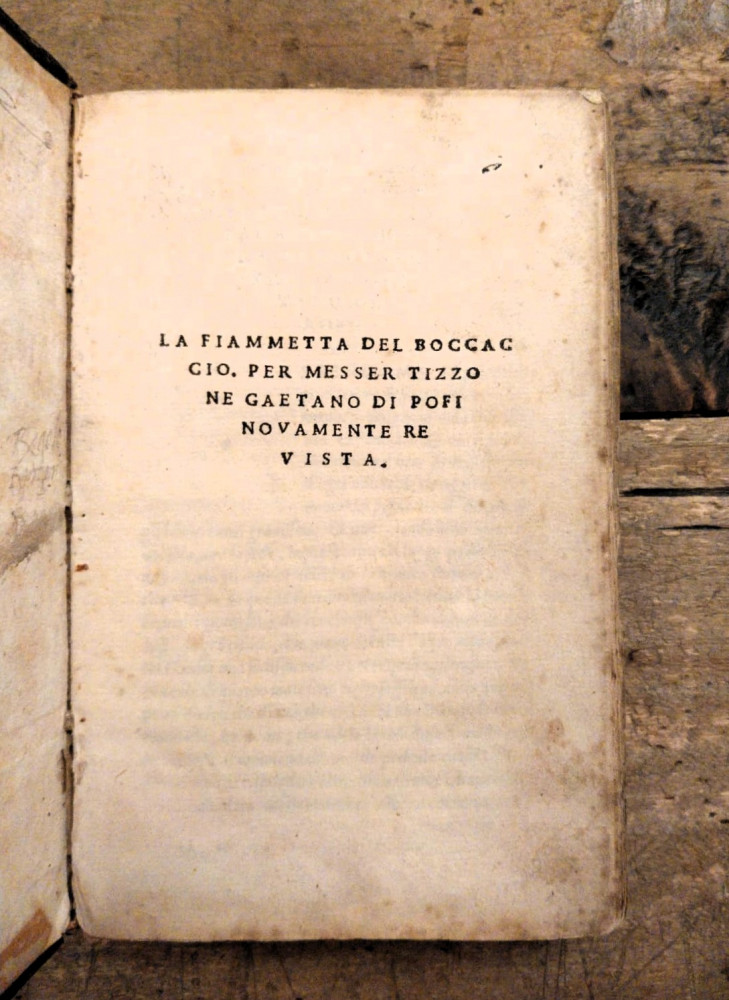 LA FIAMMETTA DEL BOCCAC
CIO. PER MESSER TIZZO
NE GAETANO DI POFI
NOVAMENTE RE
VISTA.